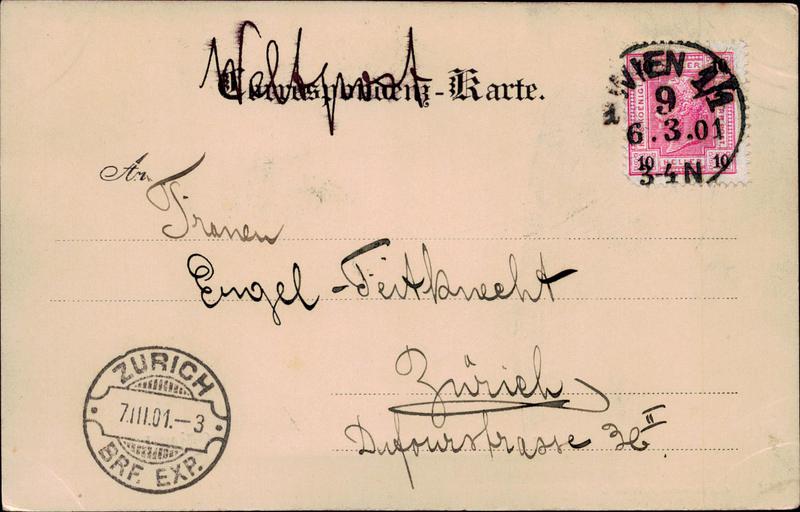 Weltpost
Correspondenz-Karte.
WIEN 1/1
9
6.3.01
3-4N
10 HELLER 10
An
Frauen
Engel-Feitknecht
Zürich
Dufourstrasse 36 II.
ZÜRICH
7.III.01.-3
BRF. EXP.